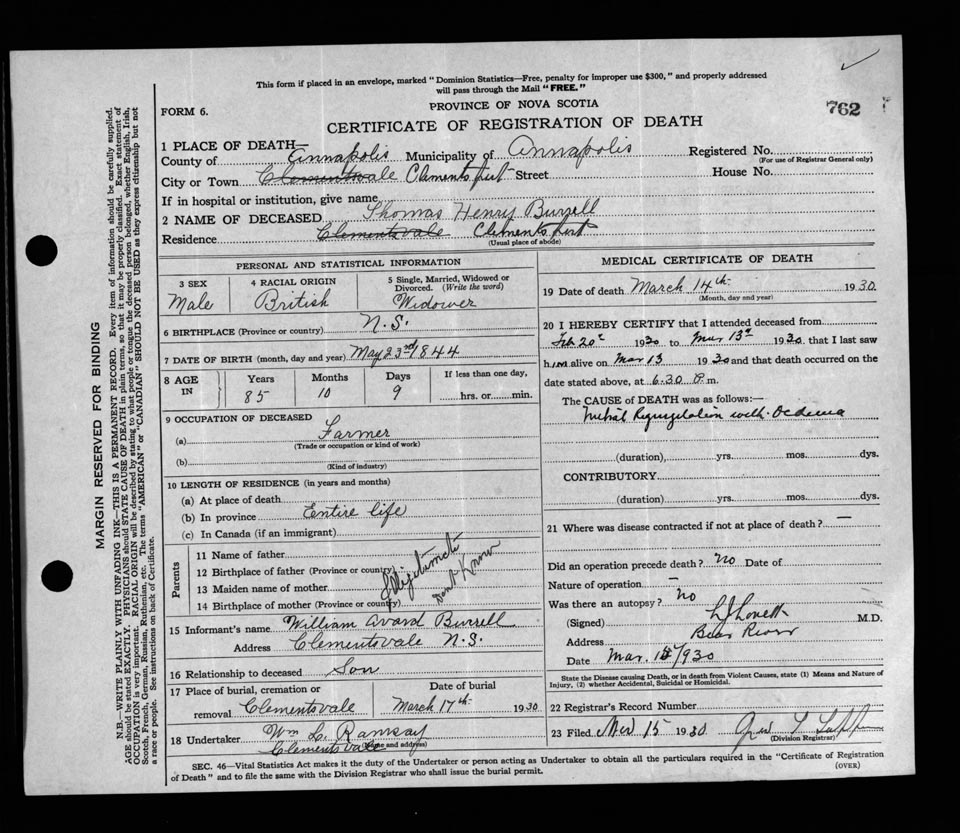 This form if placed in an envelope, marked "Dominion Statistics—Free, penalty for improper use $300," and properly addressed
will pass through the Mail "FREE."
FORM 6.
PROVINCE OF NOVA SCOTIA
762
CERTIFICATE OF REGISTRATION OF DEATH
1 PLACE OF DEATH—
County of Annapolis Municipality of Annapolis Registered No.
(For use of Registrar General only)
City or Town Clementsvale Clementsport Street House No.
If in hospital or institution, give name
2 NAME OF DECEASED Thomas Henry Burrell
Residence Clementsvale Clementsport
(Usual place of abode)
PERSONAL AND STATISTICAL INFORMATION
3 SEX
Male
4 RACIAL ORIGIN
British
5 Single, Married, Widowed or
Divorced. (Write the word)
Widower
6 BIRTHPLACE (Province or country) N.S.
7 DATE OF BIRTH (month, day and year) May 23rd 1844
8 AGE
IN
Years
85
Months
10
Days
9
If less than one day,
hrs. or min.
9 OCCUPATION OF DECEASED
(a) Farmer
(Trade or occupation or kind of work)
(b)
(Kind of industry)
10 LENGTH OF RESIDENCE (in years and months)
(a) At place of death
(b) In province Entire life
(c) In Canada (if an immigrant)
Parents
11 Name of father
12 Birthplace of father (Province or country)
13 Maiden name of mother
14 Birthplace of mother (Province or country)
Dont Know
15 Informant's name William Avard Burrell
Address Clementsvale N.S.
16 Relationship to deceased Son
17 Place of burial, cremation or
removal Clementsvale
Date of burial
March 17th 1930
18 Undertaker Wm L. Ramsay
Clementsvale
(Name and address)
MEDICAL CERTIFICATE OF DEATH
19 Date of death March 14th 1930
(Month, day and year)
20 I HEREBY CERTIFY that I attended deceased from
Feb 20 1930 to Mar 13 1930 that I last saw
him alive on Mar 13 1930 and that death occurred on the
date stated above, at 6.30 P.m.
The CAUSE of DEATH was as follows:—
Mitral Regurgitation with Oedema
(duration) yrs. mos. dys.
CONTRIBUTORY
(duration) yrs. mos. dys.
21 Where was disease contracted if not at place of death? —
Did an operation precede death? no Date of
Nature of operation —
Was there an autopsy? no
(Signed) Lovett M.D.
Address Bear River
Date Mar. 1930
State the Disease causing Death, or in death from Violent Causes, state (1) Means and Nature of
Injury, (2) whether Accidental, Suicidal or Homicidal.
22 Registrar's Record Number
23 Filed 15 1930
(Division Registrar)
SEC. 46—Vital Statistics Act makes it the duty of the Undertaker or person acting as Undertaker to obtain all the particulars required in the "Certificate of Registration
of Death" and to file the same with the Division Registrar who shall issue the burial permit.
(OVER)
MARGIN RESERVED FOR BINDING
N.B.—WRITE PLAINLY WITH UNFADING INK—THIS IS A PERMANENT RECORD. Every item of information should be carefully supplied.
AGE should be stated EXACTLY. PHYSICIANS should STATE CAUSE OF DEATH in plain terms, so that it may be properly classified. Exact statement of
OCCUPATION is very important. RACIAL ORIGIN will be described by stating to what people or tongue the deceased person belonged, whether English, Irish,
Scotch, French, German, Russian, Ruthenian, etc. The terms "AMERICAN" or "CANADIAN" SHOULD NOT BE USED as they express citizenship but not
a race or people. See instructions on back of Certificate.